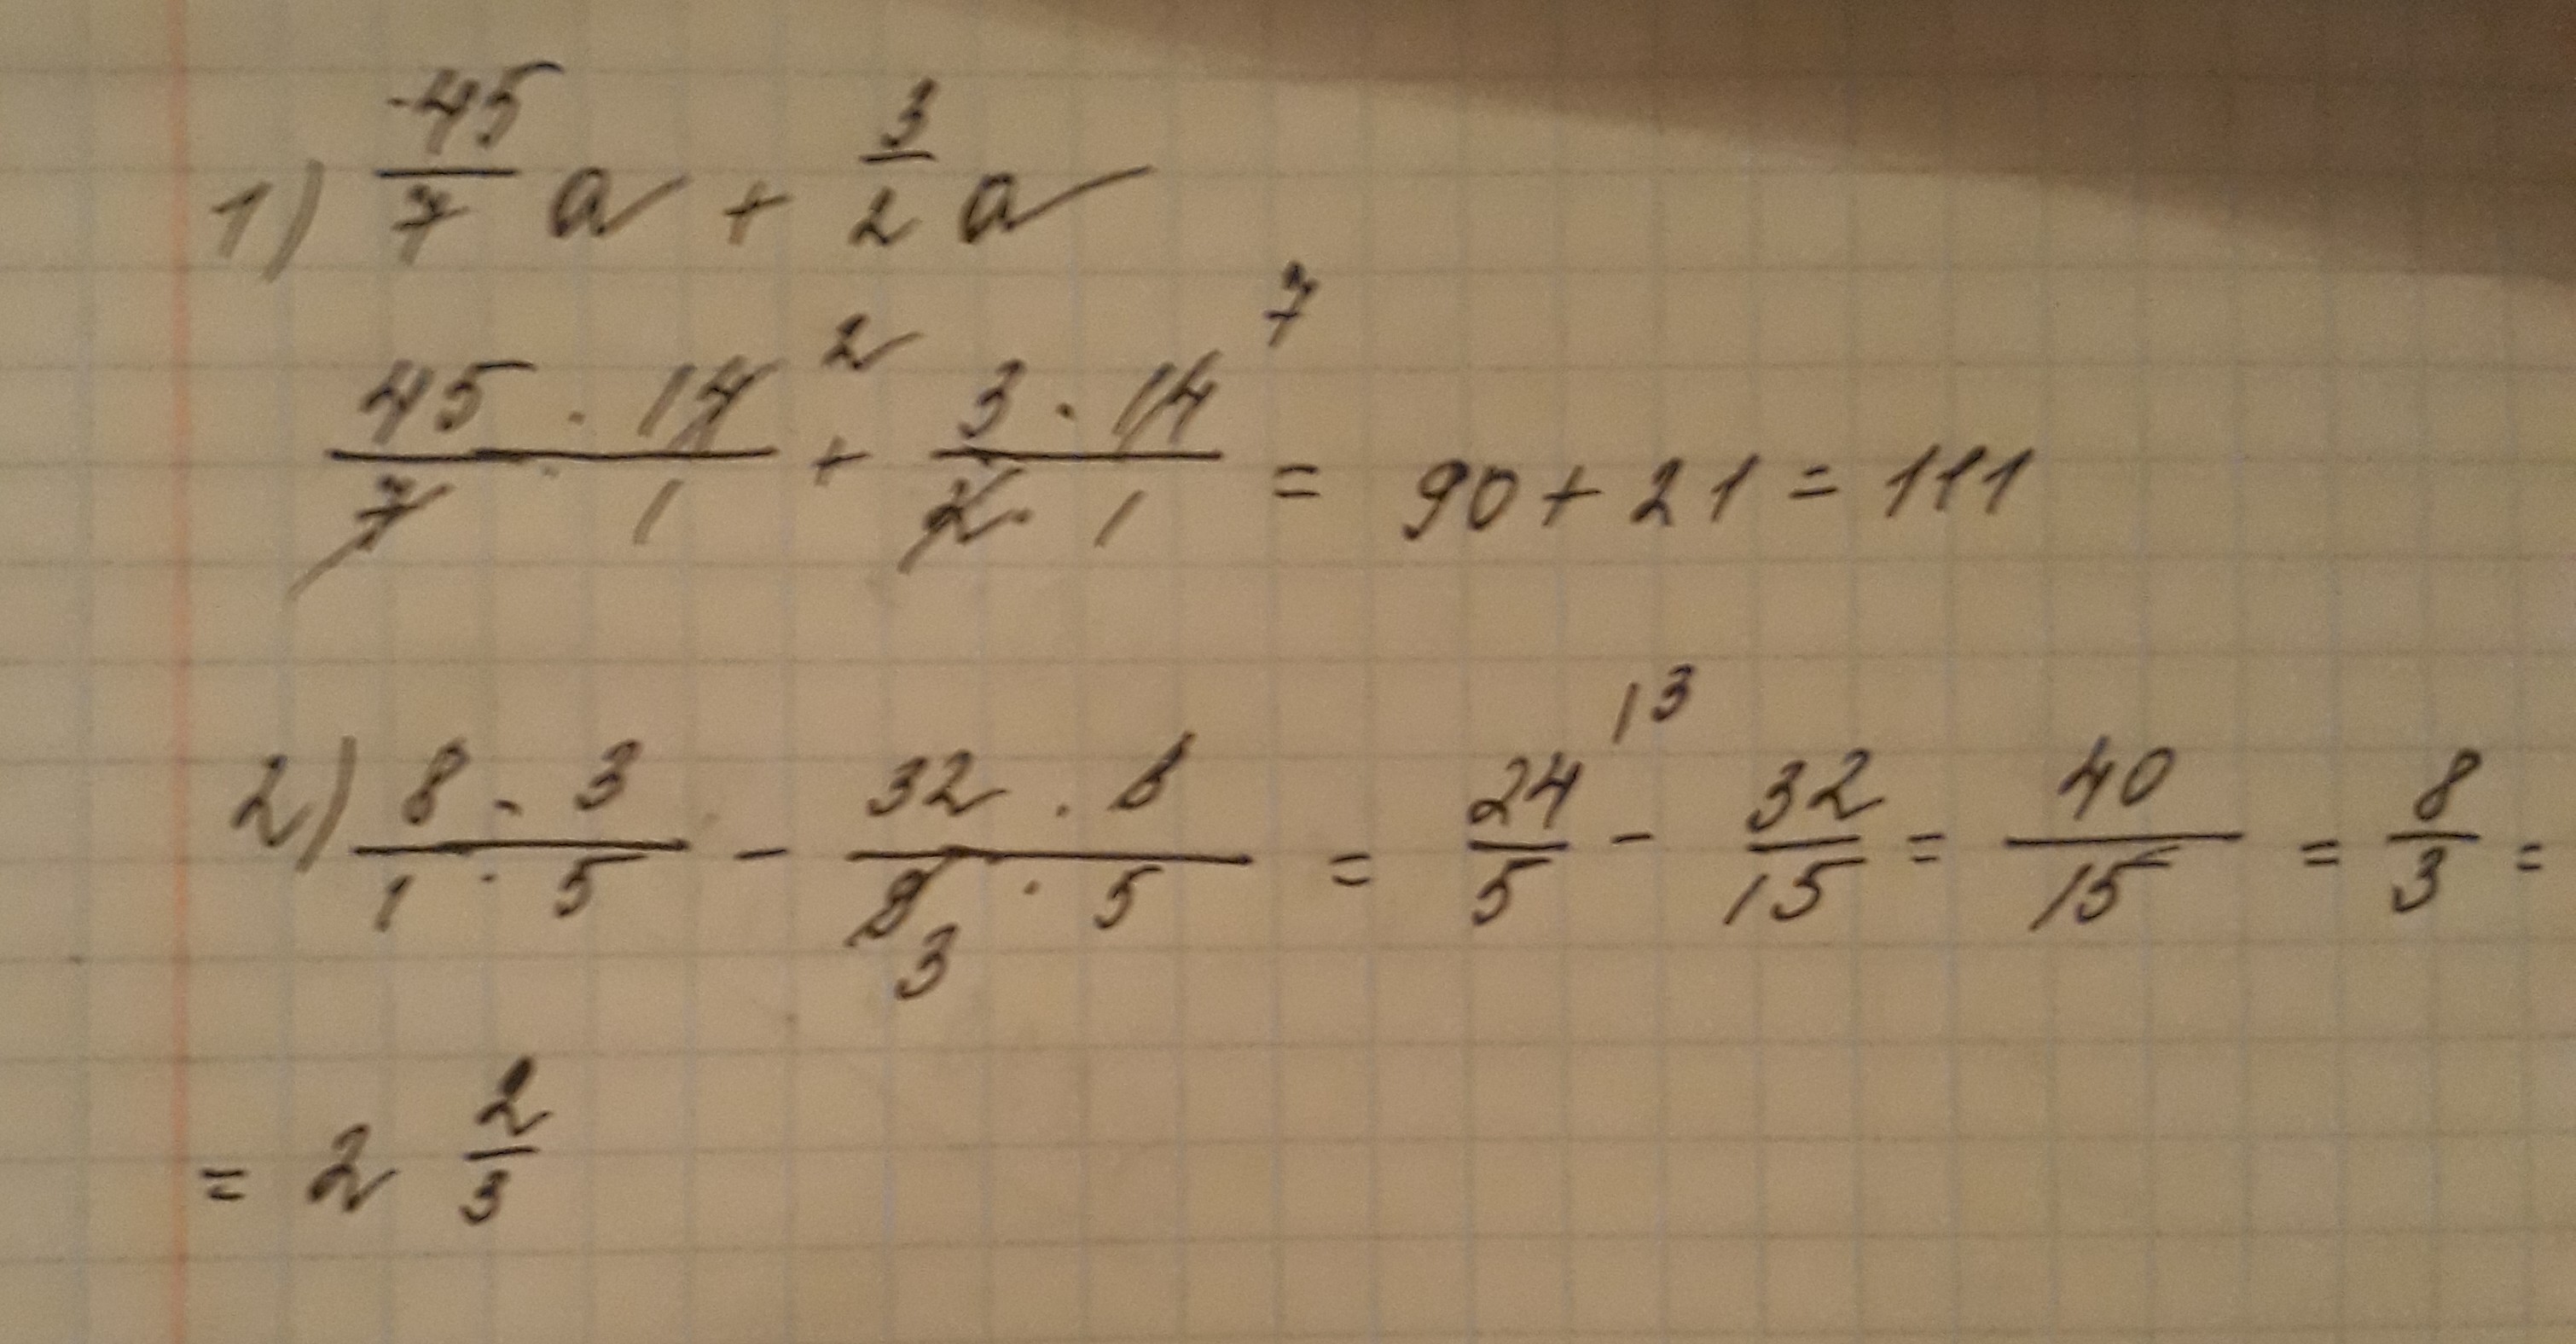 1) 45/7 a + 3/2 a
45 · 14 2 / 7 · 1 + 3 · 14 7 / 2 · 1 = 90 + 21 = 111
2) 8 · 3 / 1 · 5 - 32 · / 3 · 5 = 24/5 13 - 32/15 = 40/15 = 8/3 =
= 2 2/3